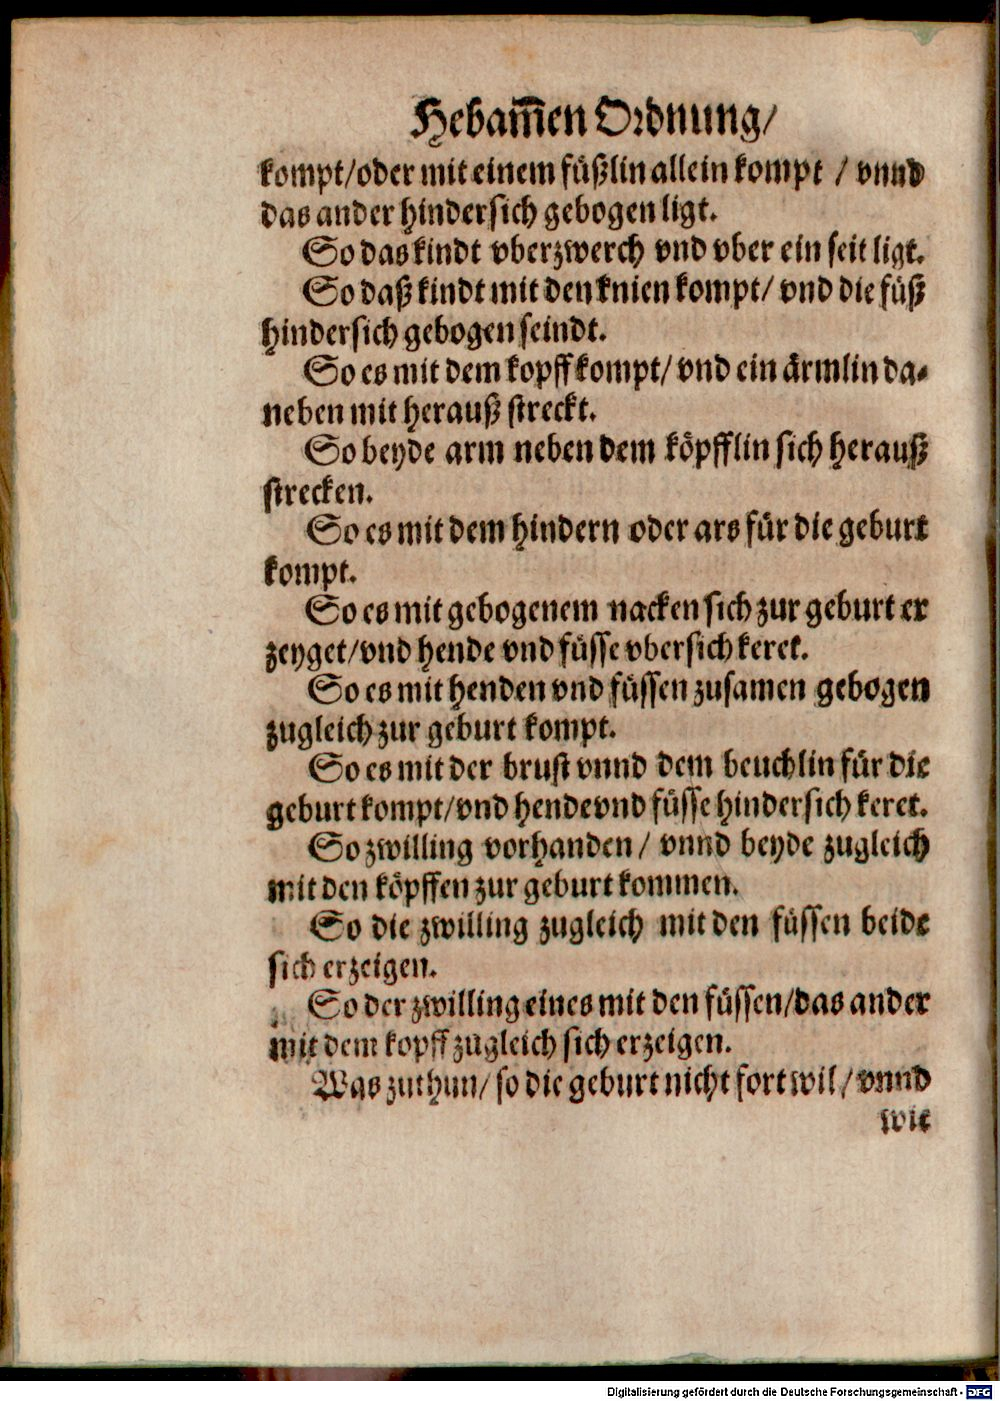 Hebam̅en Ordnung/
kompt/oder mit einem füßlin allein kompt / vnnd
das ander hindersich gebogen ligt.
So das kindt vberzwerch vnd vber ein seit ligt.
So daß kindt mit den knien kompt/ vnd die füß
hindersich gebogen seindt.
So es mit dem kopff kompt/ vnd ein ärmlin da-
neben mit herauß streckt.
So beyde arm neben dem köpfflin sich herauß
strecken.
So es mit dem hindern oder ars für die geburt
kompt.
So es mit gebogenem nacken sich zur geburt er
zeyget/vnd hende vnd füsse vbersich keret.
So es mit henden vnd füssen zusamen gebogen
zugleich zur geburt kompt.
So es mit der brust vnnd dem beuchlin für die
geburt kompt/vnd hende vnd füsse hindersich keret.
So zwilling vorhanden/ vnnd beyde zugleich
mit den köpffen zur geburt kommen.
So die zwilling zugleich mit den füssen beide
sich erzeigen.
So der zwilling eines mit den füssen/das ander
mit dem kopff zugleich sich erzeigen.
Was zuthun/ so die geburt nicht fort wil/ vnnd
wie
Digitalisierung gefördert durch die Deutsche Forschungsgemeinschaft - DFG